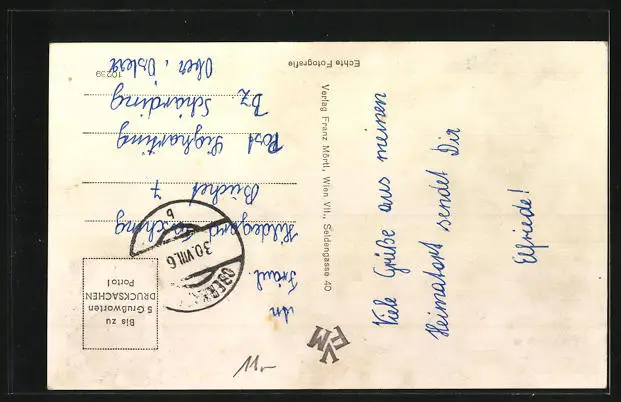 Viele Grüße aus meinen
Heimatort sendet Dir
Elfriede!
An
Fräul.
Hildegard
Büchet 7
Post Sigharting
Bz. Schärding
Ober. Österr
Bis zu
5 Grußworten
DRUCKSACHEN
Porto!
30.VIII.6
b
Verlag Franz Mörtl, Wien VII., Seidengasse 40
Echte Fotografie
10239
11-